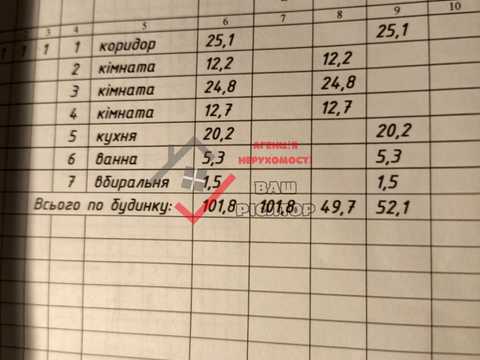 2 3 4 5 6 7 8 9 10
1 1 1 1 коридор 25,1 25,1
2 кімната 12,2 12,2
3 кімната 24,8 24,8
4 кімната 12,7 12,7
5 кухня 20,2 20,2
6 ванна 5,3 5,3
7 вбиральня 1,5 1,5
Всього по будинку: 101,8 101,8 49,7 52,1
АГЕНЦІЯ
НЕРУХОМОСТІ
ВАШ
РІЄЛТОР